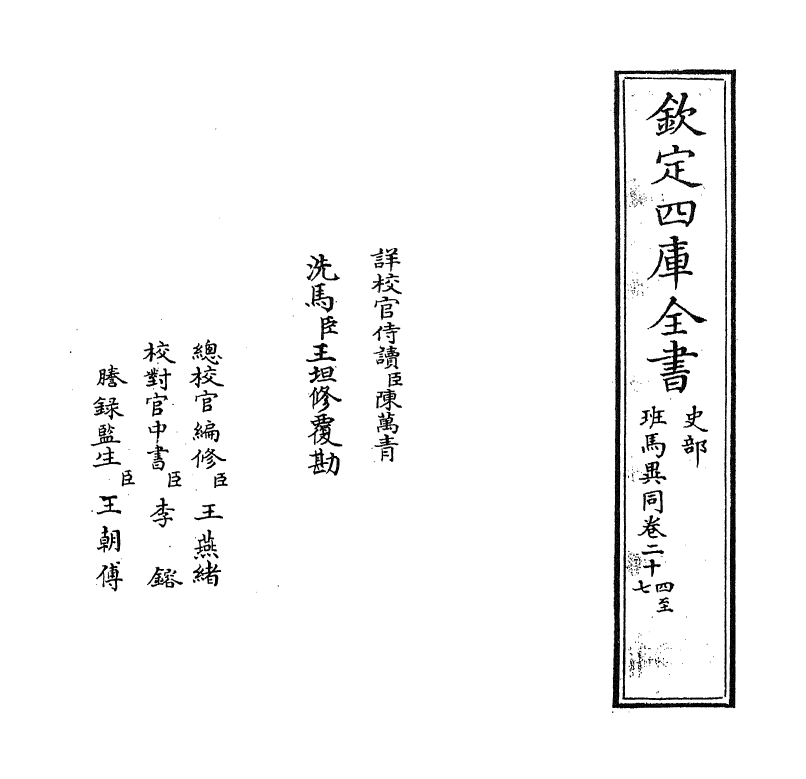 欽定四庫全書
史部
班馬異同卷二十四至七
詳校官侍讀臣陳萬青
洗馬臣王坦修覆勘
總校官編修臣王燕緒
校對官中書臣李鎔
謄録監生臣王朝傅